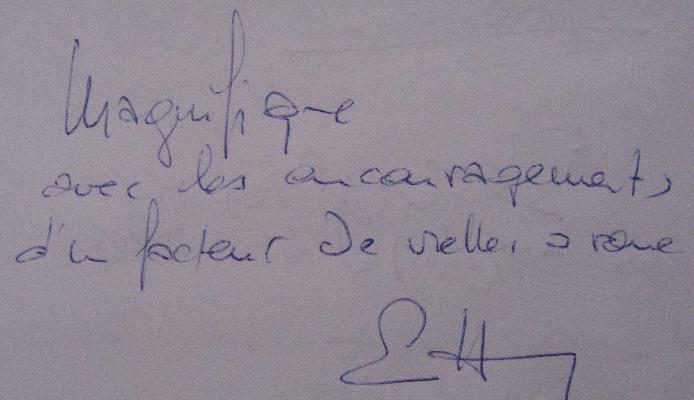 Magnifique
avec les encouragements
d'un facteur de vielles à roue